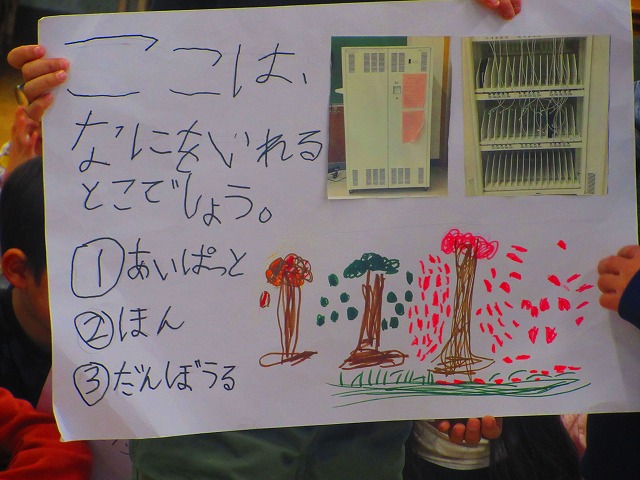 ここは、
なにをいれる
とこでしょう。
①あいぱっと
②ほん
③だんぼうる